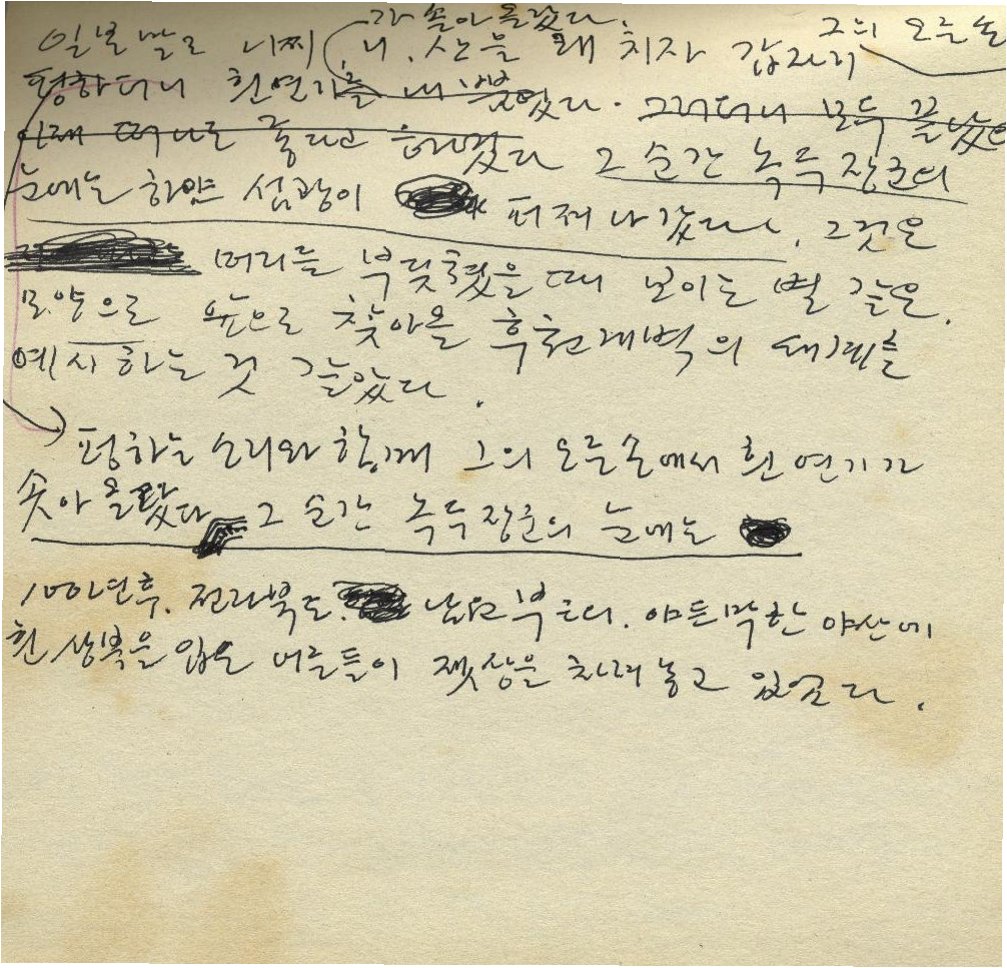 가 솟아 올랐다.
일본말로 니찌, 니, 산을 외치자 갑자기 그의 오른손
펑하더니 흰연기를 내뿜었다. 그러더니 모두 끝났으
이제 떠나도 좋다고 하였다 그 순간 녹두장군의
눈에는 하얀 섬광이 퍼져나갔다. 그것은
머리를 부딪혔을 때 보이는 별 같은
모양으로 앞으로 찾아올 후천개벽의 세계를
예시하는 것 같았다.
펑하는 소리와 함께 그의 오른손에서 흰 연기가
솟아 올랐다 그 순간 녹두장군의 눈에는
100년후. 전라북도 남원 부근의. 야트막한 야산에
흰 상복을 입은 너른들이 젯상을 차려놓고 있었다.